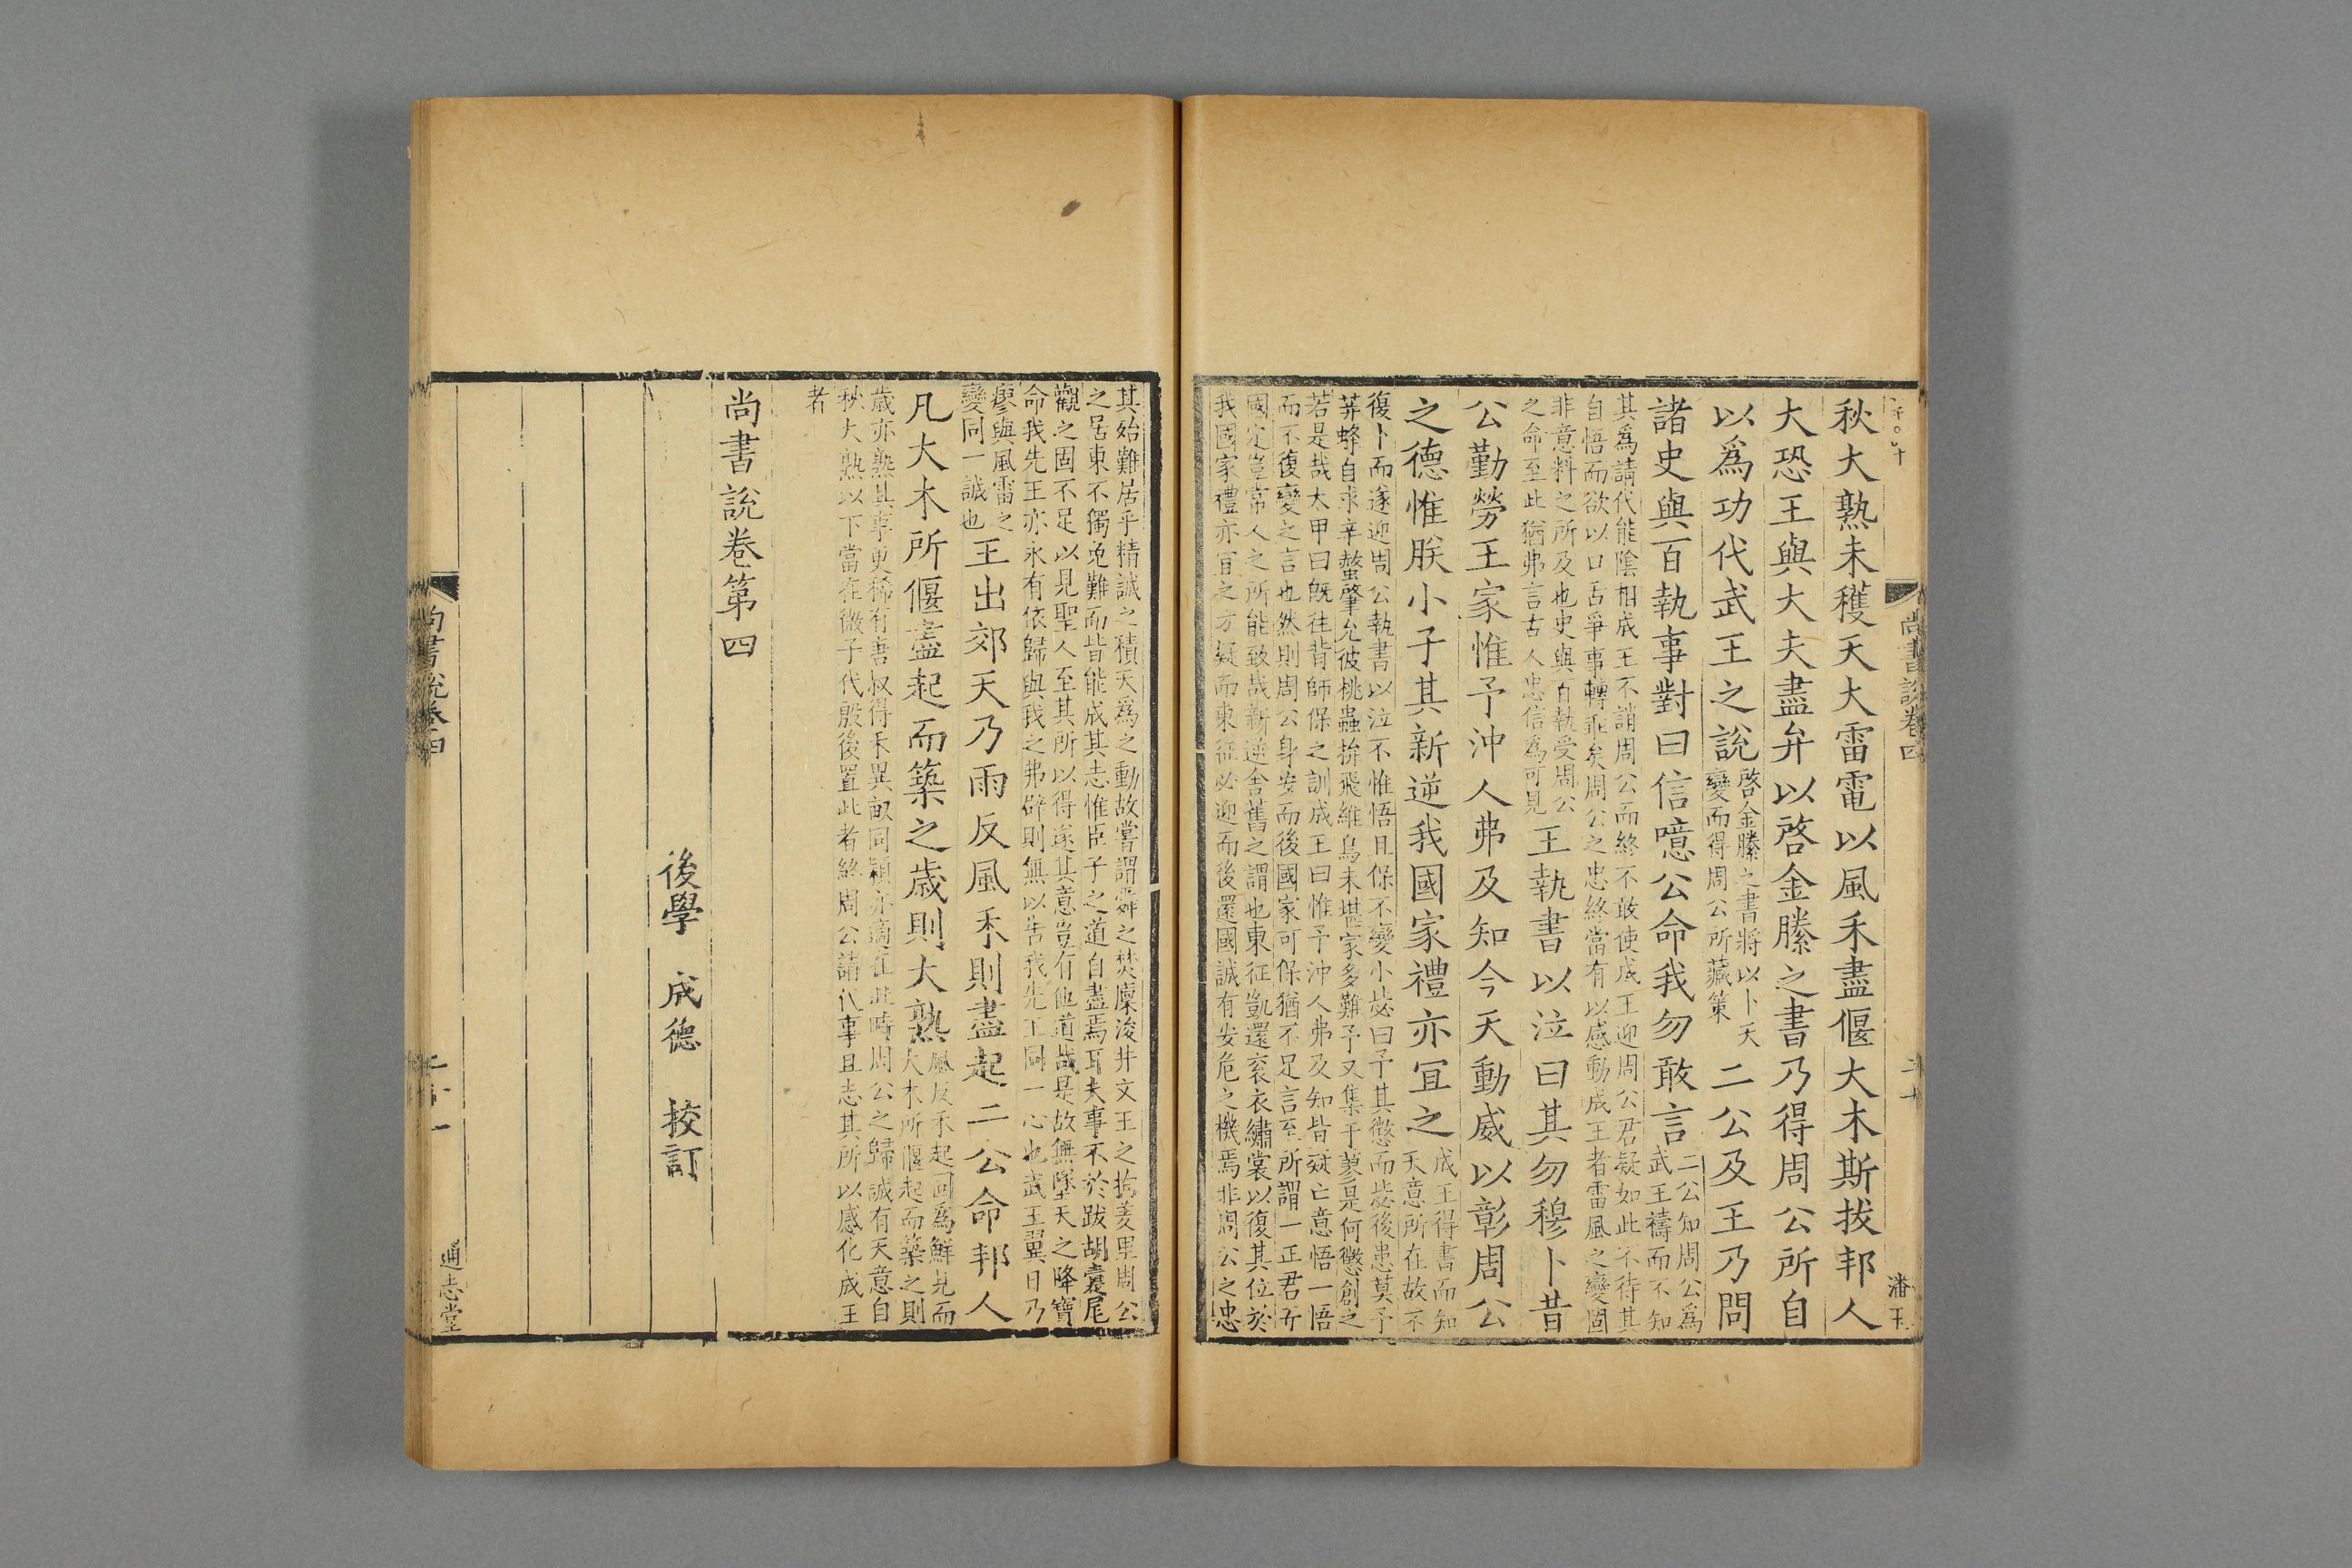 秋大熟未穫天大雷電以風禾盡偃大木斯拔邦人
大恐王與大夫盡弁以啓金縢之書乃得周公所自
以爲功代武王之說啓金縢之書將以卜天
變而得周公所藏策二公及王乃問
諸史與百執事對曰信噫公命我勿敢言二公知周公爲
武王禱而不知
其爲請代能陰相成王不誚周公而終不敢使成王迎周公君疑如此不待其
自悟而欲以口舌爭事轉乖矣周公之忠終當有以感動成王者雷風之變固
非意料之所及也史與百執受周公
之命至此猶弗言古人忠信爲可見王執書以泣曰其勿穆卜昔
公勤勞王家惟予沖人弗及知今天動威以彰周公
之德惟朕小子其新逆我國家禮亦宜之成王得書而知
天意所在故不
復卜而遂迎周公執書以泣不惟悟且保不變小毖曰予其懲而毖後患莫予
荓蜂自求辛螫肇允彼桃蟲拚飛維鳥未堪家多難予又集于蓼是何懲創之
若是哉太甲曰既往背師保之訓成王曰惟予沖人弗及知皆疑亡意悟一悟
而不復變之言也然則周公身安而後國家可保猶不足言至所謂一正君而
國定豈常人之所能致哉新逆舍舊之謂也東征凱還衮衣繡裳以復其位於
我國家禮亦宜之方疑而東征必迎而後還國誠有安危之機焉非周公之忠
尚書說卷四
二十
潘玉
其始難居乎精誠之積天爲之動故嘗謂舜之焚廩浚井文王之拘羑里周公
之居東不獨免難而皆能成其志惟臣子之道自盡焉耳夫事不於跋胡疐尾
觀之固不足以見聖人至其所以得遂其意豈有他道哉是故無墜天之降寶
命我先王亦永有依歸與我之弗辟則無以告我先王同一心也武王翼日乃
瘳與風雷之
變同一誠也王出郊天乃雨反風禾則盡起二公命邦人
凡大木所偃盡起而築之歲則大熟風反禾起回爲鮮見而
大木所偃起而築之則
歲亦熟其事更稀有唐叔得禾異畝同穎亦適在此時周公之歸誠有天意自
秋大熟以下當在微子代殷後置此者終周公請代事且志其所以感化成王
者
尚書說卷第四
後學　成德　挍訂
尚書說卷四
二十一
通志堂